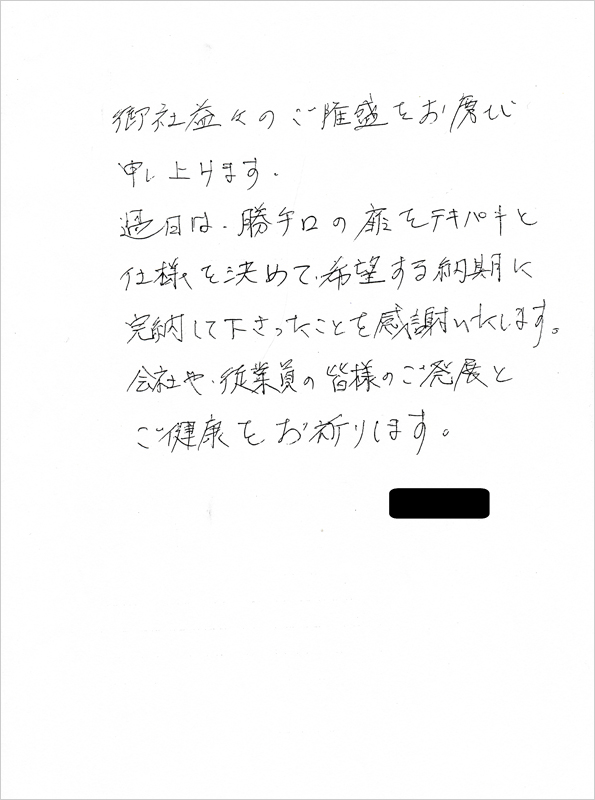 御社益々のご隆盛をお慶び
申し上げます.
過日は、勝手口の扉をテキパキと
仕様を決めて、希望する納期に
完納して下さったことを感謝いたします。
会社や、従業員の皆様のご発展と
ご健康をお祈りします。